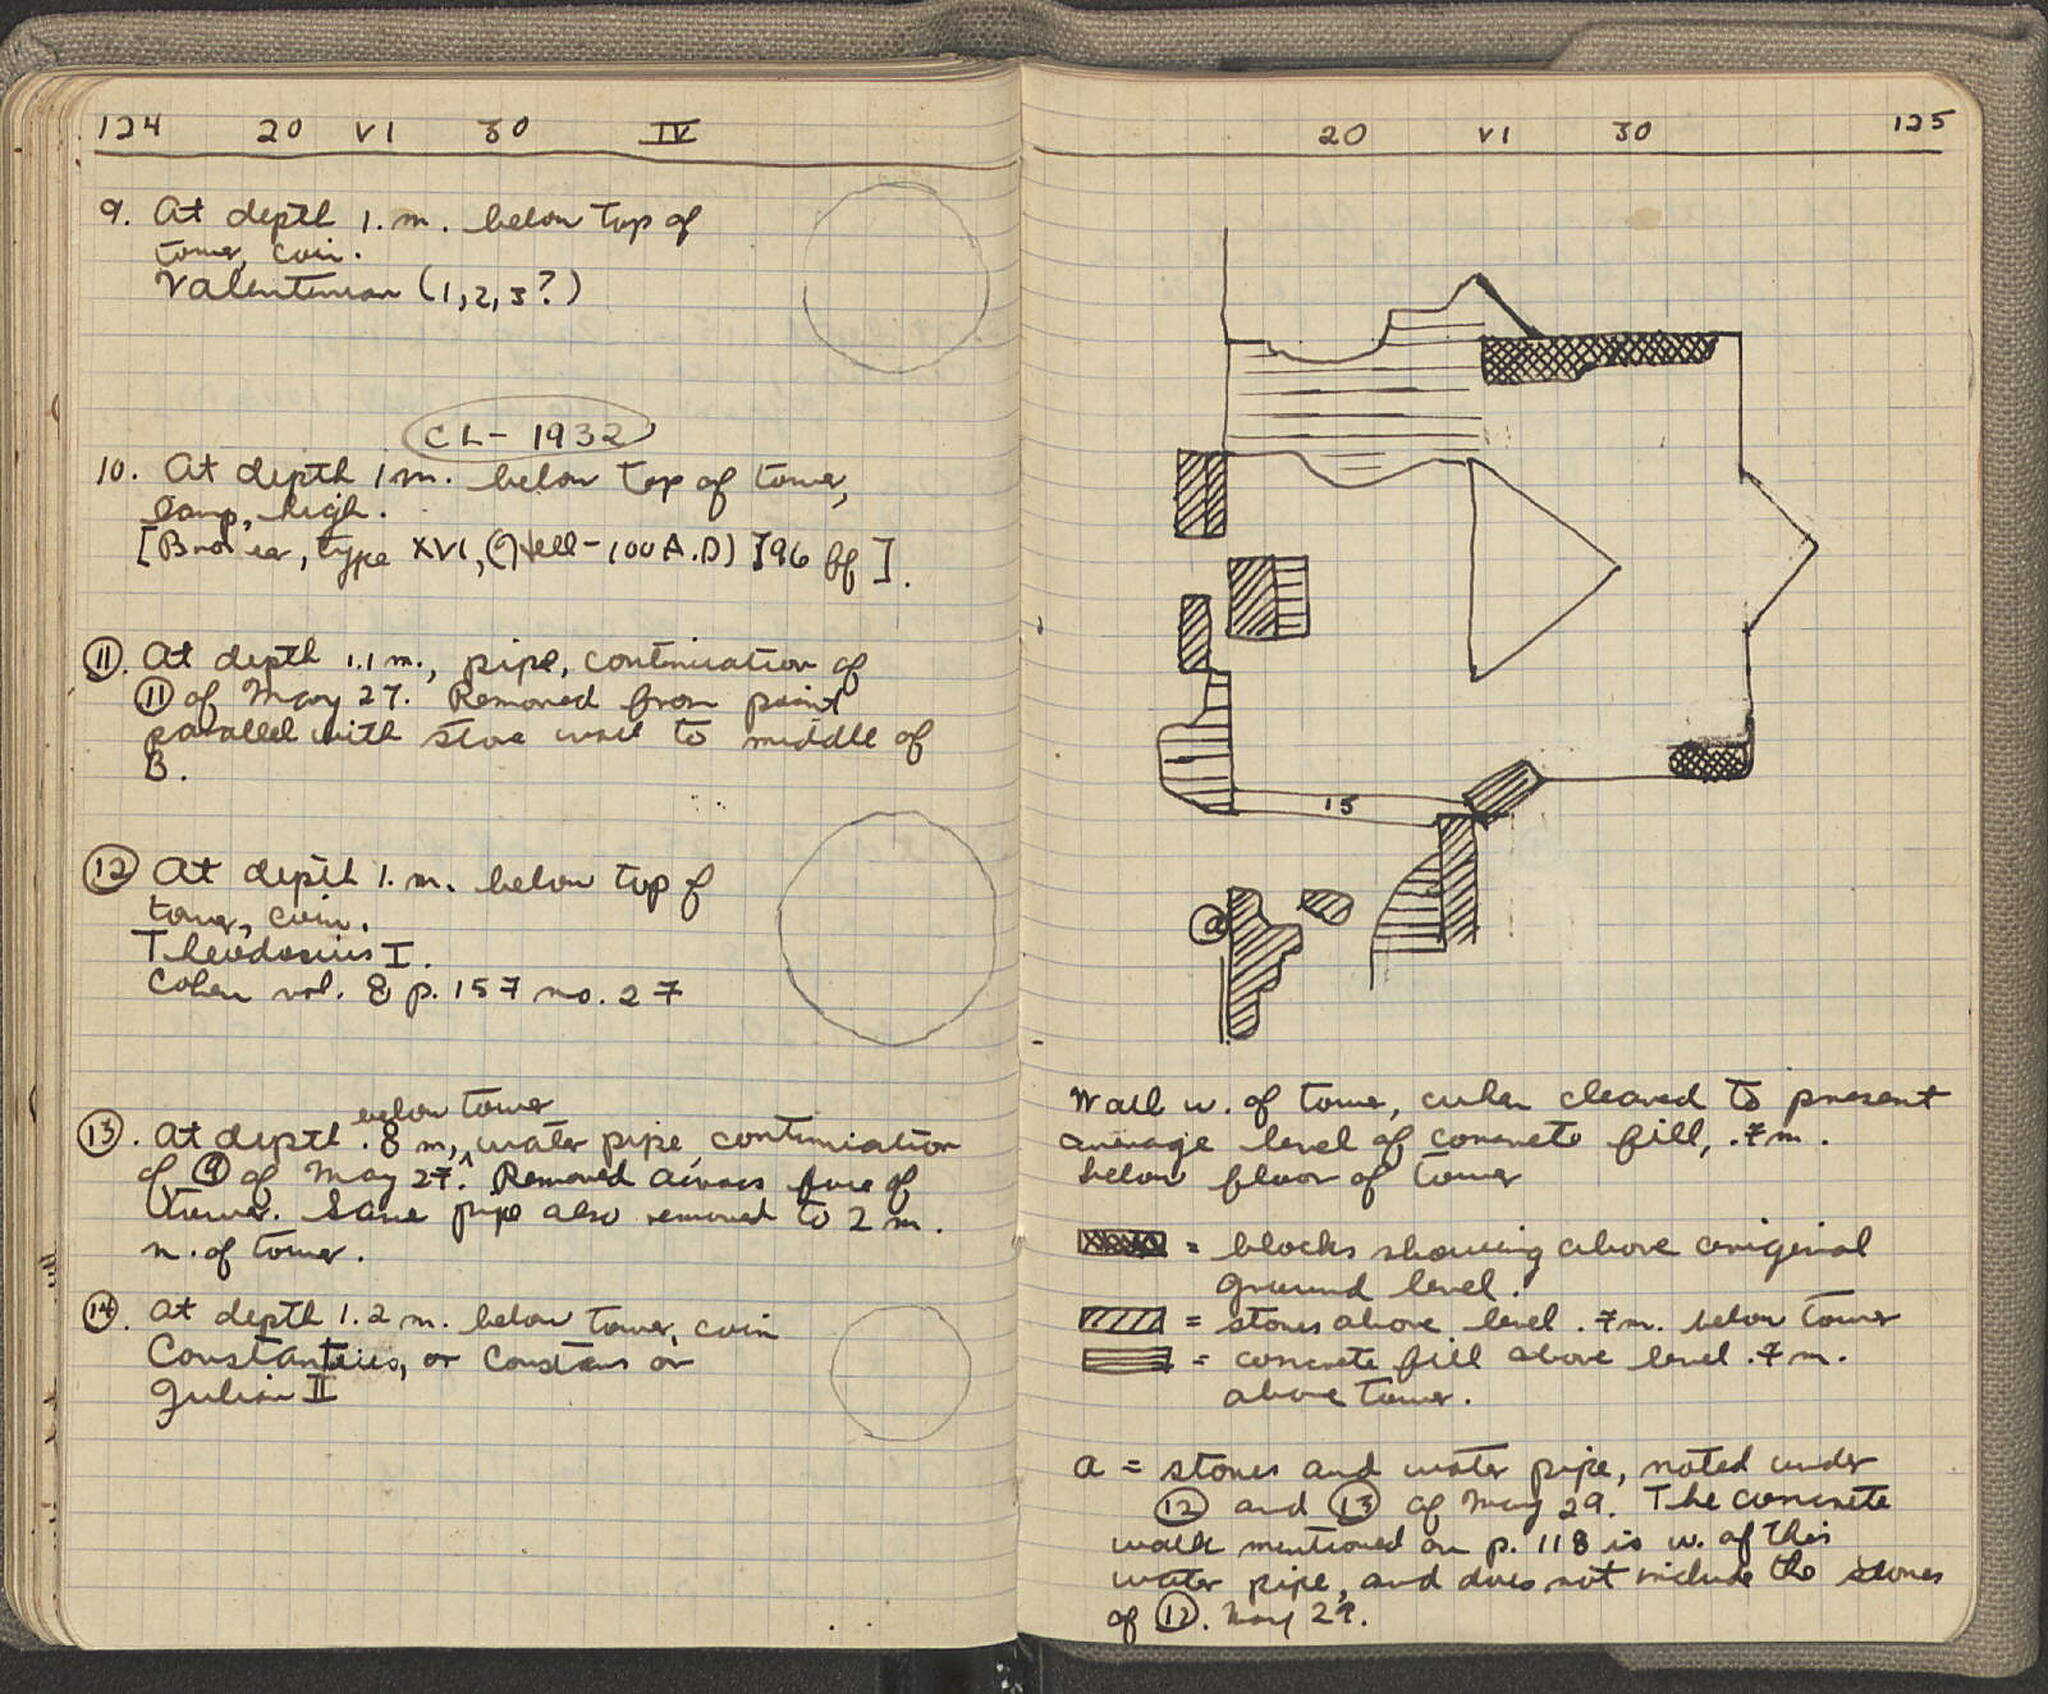 124 20 VI 30 IV
9. At depth 1. m. below top of
tower, coin.
Valentinian (1,2,3?)
CL- 1932
10. At depth 1 m. below top of tower,
lamp, high.
[Broneer, type XVI, (Hell-100 A.D) ]96 ff].
11. At depth 1.1 m., pipe, continuation of
11 of May 27. Removed from point
parallel with stove wall to middle of
B.
12 At depth 1. m. below top of
tower, coin.
Theodosius I.
Cohen vol. 8 p. 157 no. 27
below tower
13. At depth .8 m, ^ water pipe, continuation
of 9 of May 27. Removed across face of
tower. Same pipe also removed to 2 m.
n. of tower.
14. At depth 1.2 m. below tower, coin
Constantius, or Constans or
Julian II
20 VI 30 125
15
a
Wall w. of tower, when cleared to present
average level of concrete fill, .7 m.
below floor of tower
= blocks showing above original
ground level.
= stones above level .7 m. below tower
= concrete fill above level .7 m.
above tower.
a = stones and water pipe, noted under
12 and 13 of May 29. The concrete
walk mentioned on p. 118 is w. of this
water pipe, and does not include the stones
of 12. May 29.